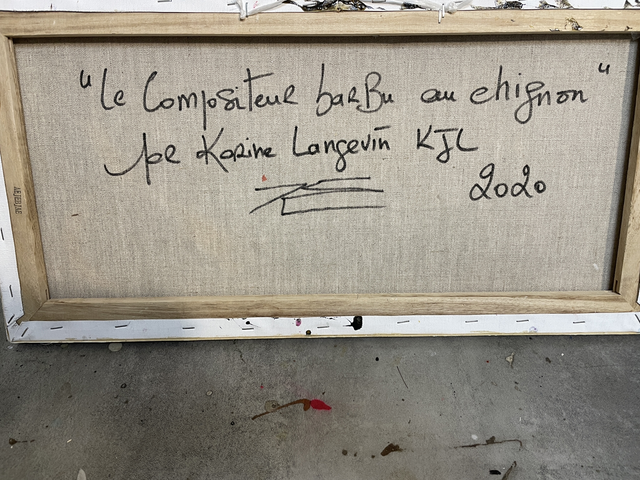 "Le Compositeur barBu au chignon"
pe Karine Langevin KJL
2020